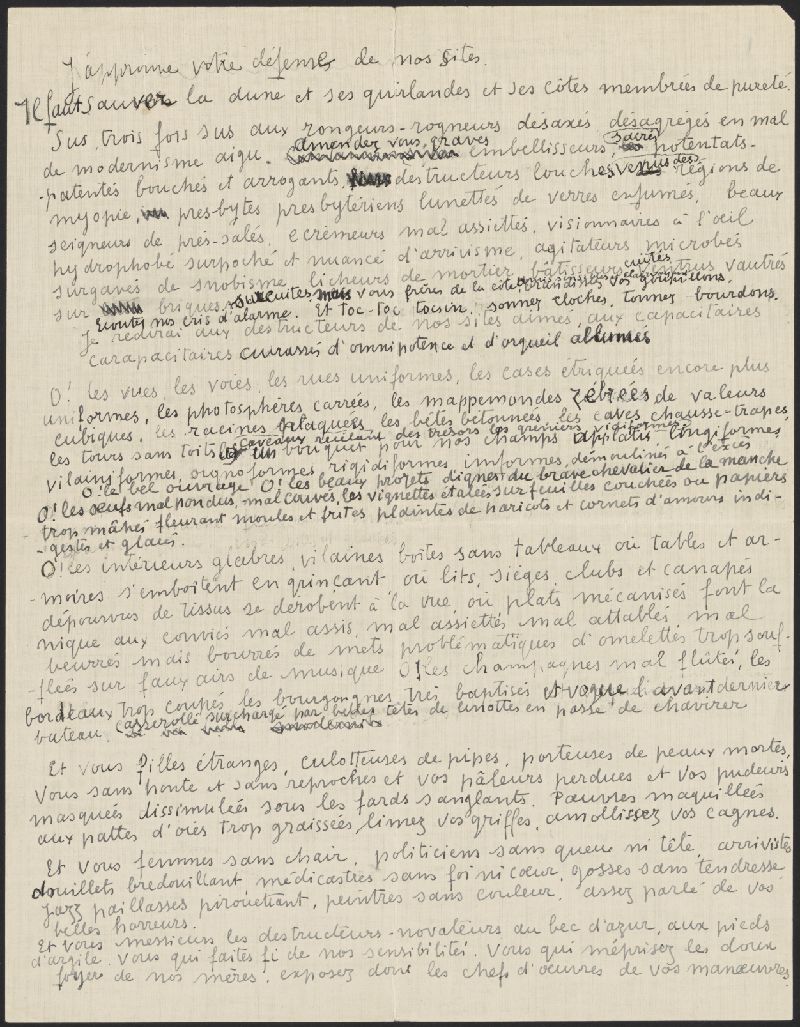 J'approuve votre défense de nos sites.
Il faut sauver la dune et ses guirlandes et ses côtes membrées de pureté.
Sus, trois fois sus aux rongeurs-rogneurs désaxés désagrégés en mal
de modernisme aigu. amendez vous, graves embellisseurs, sacrés potentats-
-patentés bouchés et arrogants, destructeurs louches venus des régions de
myopie, presbytes presbytériens lunettés de verres enfumés, beaux
seigneurs de prés-salés, écrêmeurs mal assiettés, visionnaires à l'oeil
hydrophobé surpoché et nuancé d'arrivisme, agitateurs microbés
surgavés de snobisme, licheurs de mortier, bâtisseurs vautrés
sur briques surcuites mais vous frères de la côte, brandissez vos goupillons,
Ecoutez nos cris d'alarme. Et toc-toc tocsin, sonnez cloches, tonnez-bourdons.
Je redirai aux destructeurs de nos sites aimés, aux capacitaires
carapacitaires cuirassés d'omnipotence et d'orgueil allumés
O! les vues, les voies, les rues uniformes, les cases étriquées encore plus
uniformes, les photosphères carrées, les mappemondes zébrées de valeurs
cubiques, les racines bétaquées, les bêtes bétonnées, les caves chausse-trapes,
les caveaux recélant des trésors les greniers vidiformes
les tours sans toits un bouquet pour nos champs applatis, longiformes,
vilainiformes, ognoformes, rigidiformes informes, démoulinés à l'excès
O! le bel ouvrage O! les beaux projets dignes du brave chevalier de la manche
O! les oeufs mal pondus, mal couvés, les vignettes étalées sur feuilles couchées ou papiers
trop mâchés fleurant moules et frites plaintes de haricots et cornets d'amours indi-
-gestes et glacés.
O! les intérieurs glabres, vilaines boites sans tableaux où tables et ar-
-moires s'emboitent en grinçant où lits, sièges, clubs et canapés
dépourvus de tissus se dérobent à la vue, où plats mécanisés font la
nique aux conviés mal assis, mal assiettés mal attablés, mal
beurrés mais bourrés de mets problématiques d'omelettes trop souf-
-flées sur faux airs de musique O! les champagnes mal flûtés, les
bordeaux trop coupés les bourgognes très baptisés et vogue l'avant dernier
bateau, casserolle surchargé par belles têtes de linottes en passe de chavirer
Et vous filles étranges, culotteuses de pipes, porteuses de peaux mortes,
vous sans honte et sans reproches et vos pâleurs perdues et vos pudeurs
masquées dissimulées sous les fards sanglants. Pauvres maquillées
aux pattes d'oies trop graissées, limez vos griffes, amollissez vos cagnes.
Et vous femmes sans chair, politiciens sans queue ni tête, arrivistes
douillets bredouillant, médicastres sans foi ni coeur, gosses sans tendresse
Jazz paillasses pirouettant, peintres sans couleur, assez parlé de vos
belles horreurs.
Et vous messieurs les destructeurs-novateurs au bec d'azur, aux pieds
d'argile. Vous qui faites fi de nos sensibilités. Vous qui méprisez les doux
foyers de nos mères, exposez donc les chefs d'oeuvres de vos manoeuvres